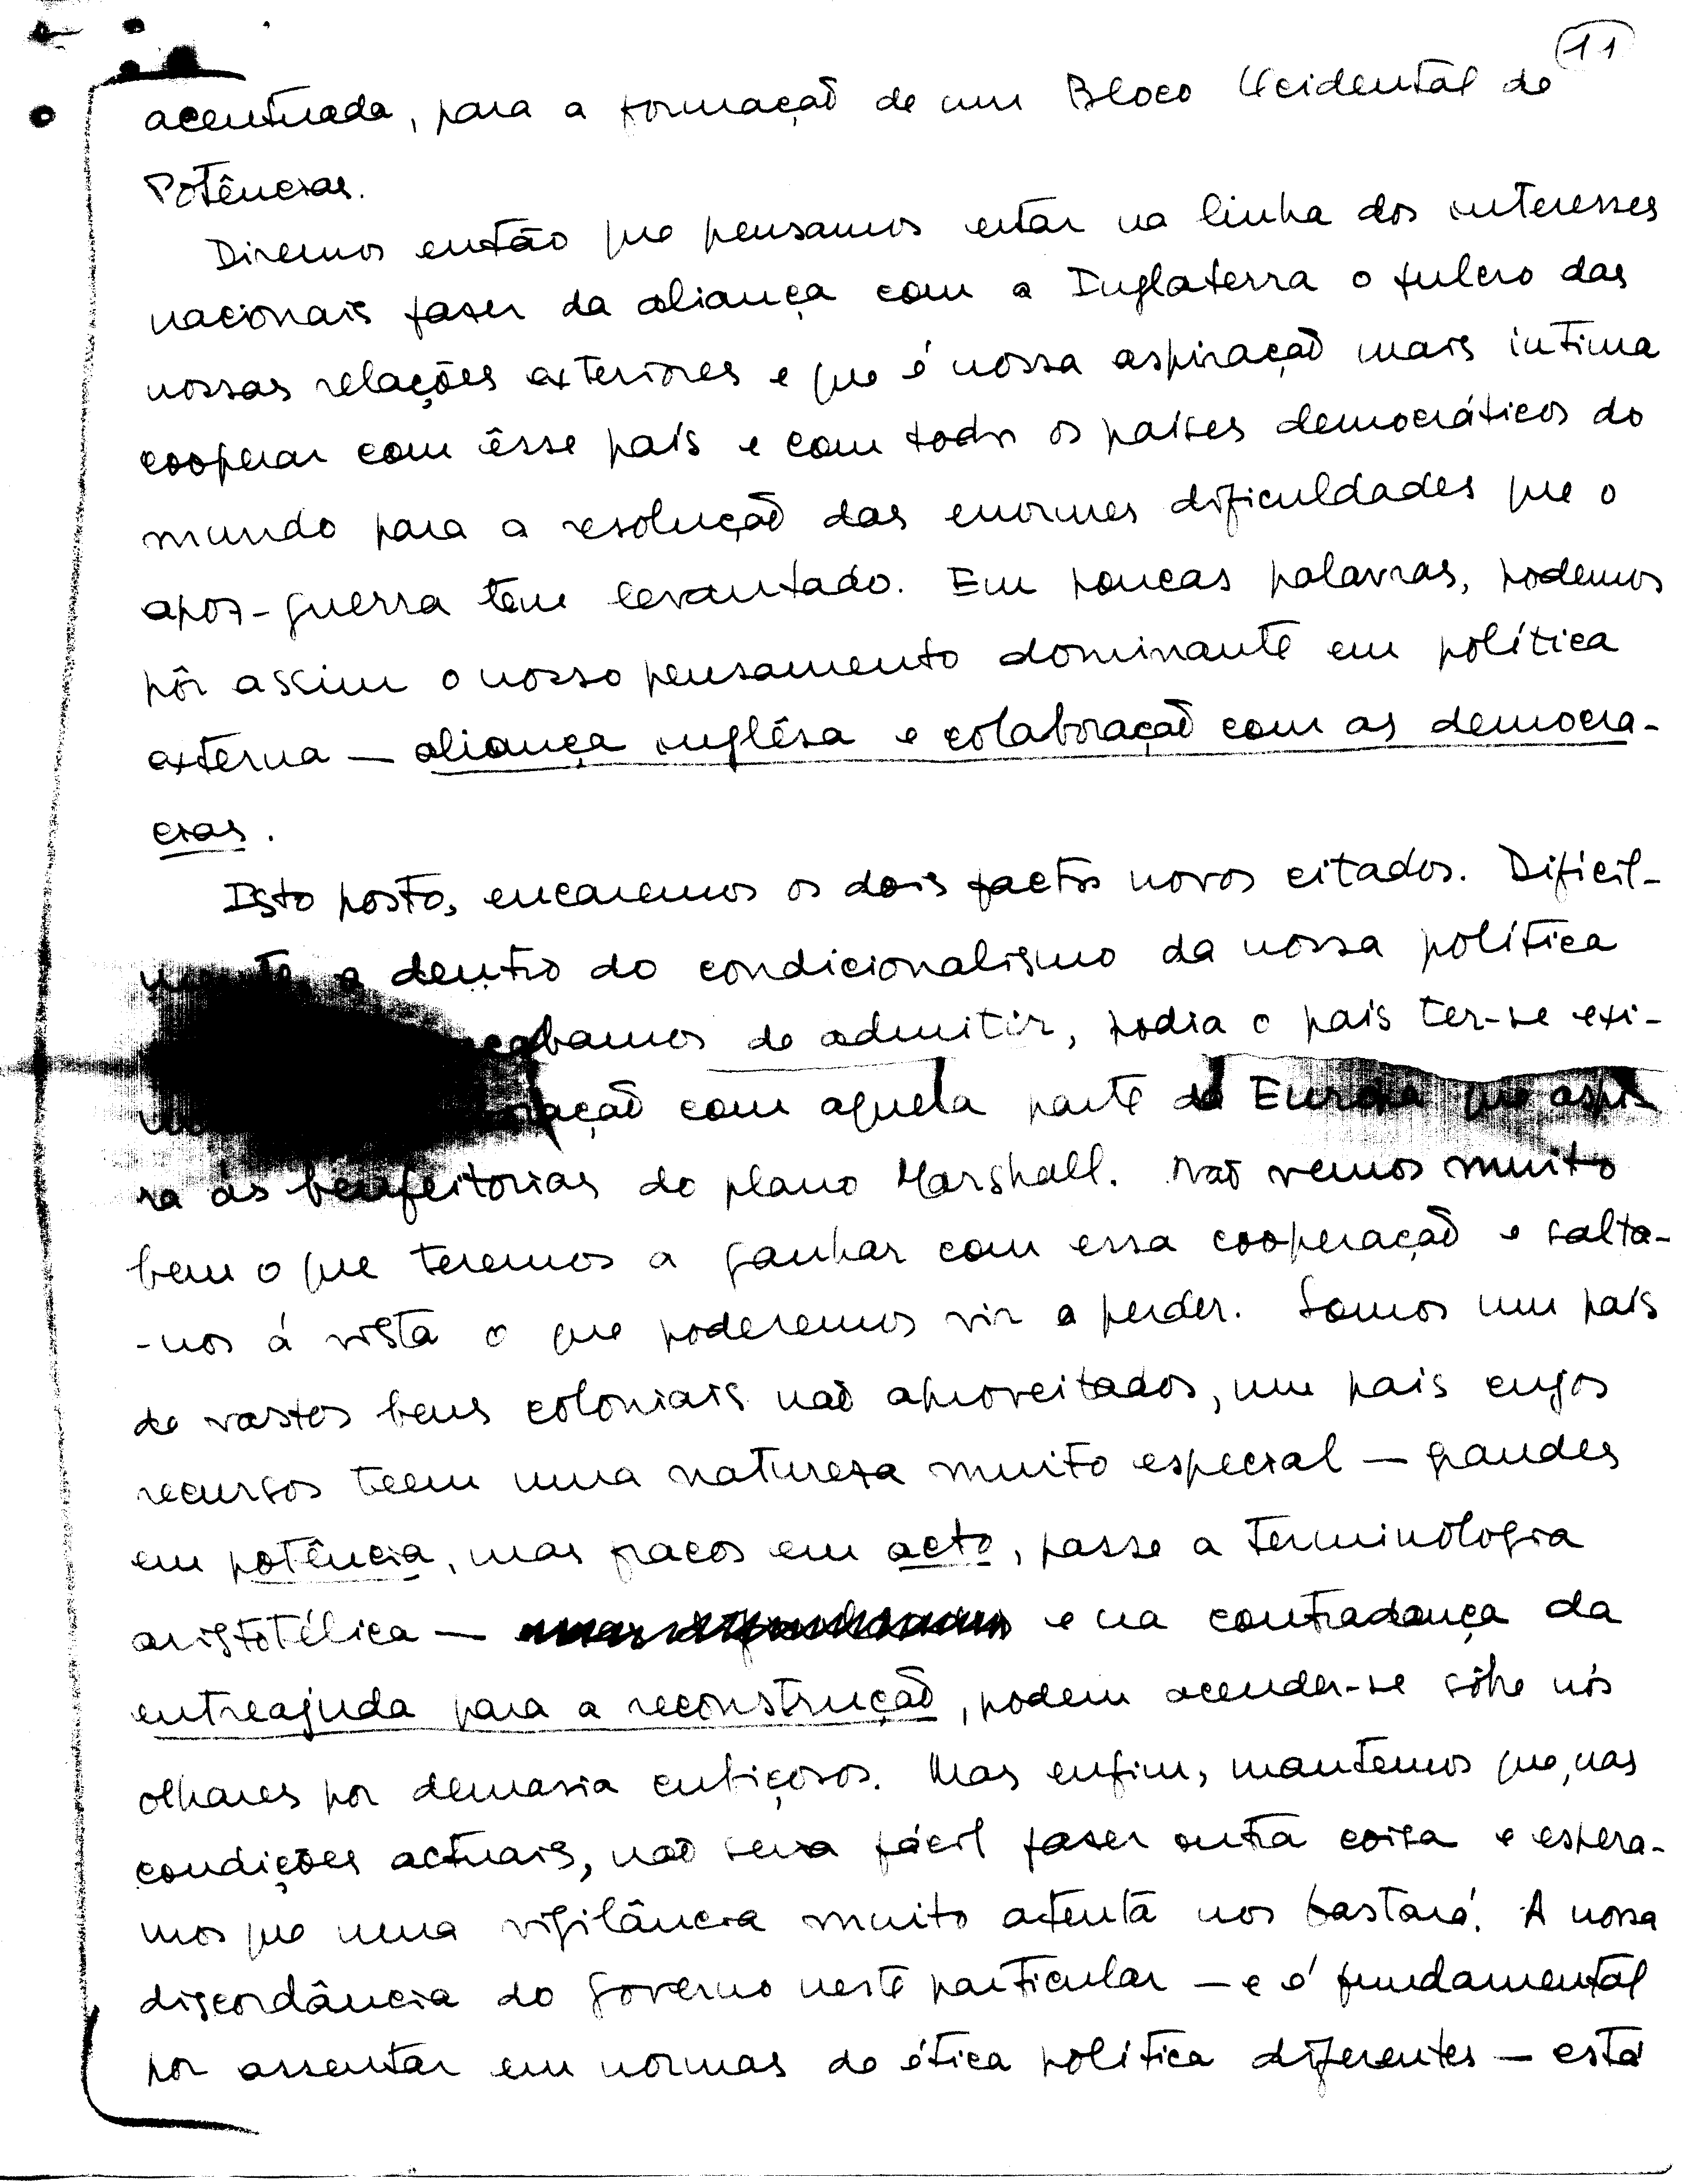 11
acentuada, para a formação de um Bloco Ocidental de
Potências.
Diremos então que pensamos estar na linha dos interesses
nacionais fazer da aliança com a Inglaterra o fulcro das
nossas relações exteriores e que é nossa aspiração mais intima
cooperar com êsse país e com todos os países democráticos do
mundo para a resolução das enormes dificuldades que o
apos-guerra tem levantado. Em poucas palavras, podemos
pôr assim o nosso pensamento dominante em política
externa — aliança inglêsa e colaboração com as democra-
cias.
Isto posto, encaremos os dois factos novos citados. Dificil-
mente, a dentro do condicionalismo da nossa política
acabamos de admitir, podia o pais ter-se exi-
com aquela parte da Europa que aspi-
ra ás benfeitorias do plano Marshall. Não vemos muito
bem o que teremos a ganhar com essa cooperação e salta-
-nos á vista o que poderemos vir a perder. Somos um país
de vastos bens coloniais não aproveitados, um pais cujos
recursos teem uma natureza muito especial — grandes
em potência, mas fracos em acto, passe a terminologia
aristotélica — e na contradança da
entreajuda para a reconstrução, podem acender-se sôbre nós
olhares por demasia cubiçosos. Mas enfim, mantemos que, nas
condições actuais, não seria fácil fazer outra coisa e espera-
mos que uma vigilância muito atenta nos bastará. A nossa
discordância do Governo neste particular — e é fundamental
por assentar em normas de ética política diferentes — está